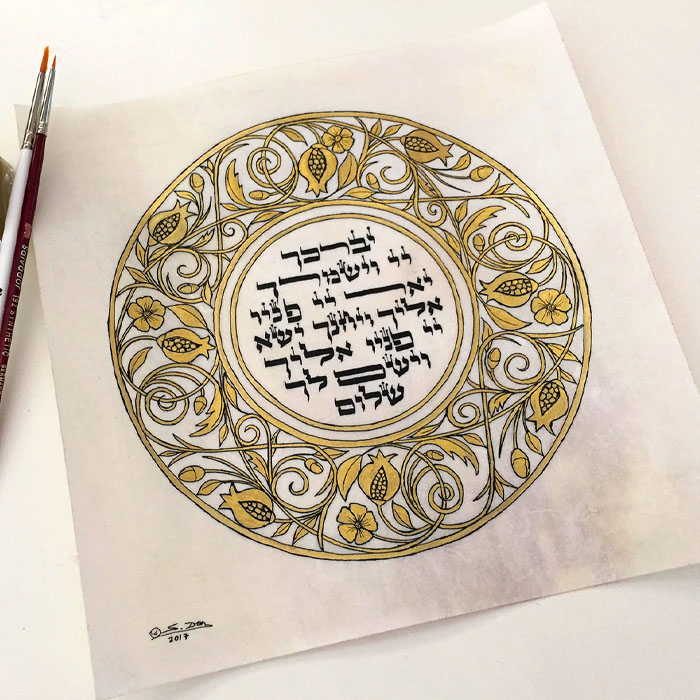 יברכך
יי וישמרך
יאר יי פניו
אליך ויחנך ישא
יי פניו אליך
וישם לך
שלום
S. Dan
2017